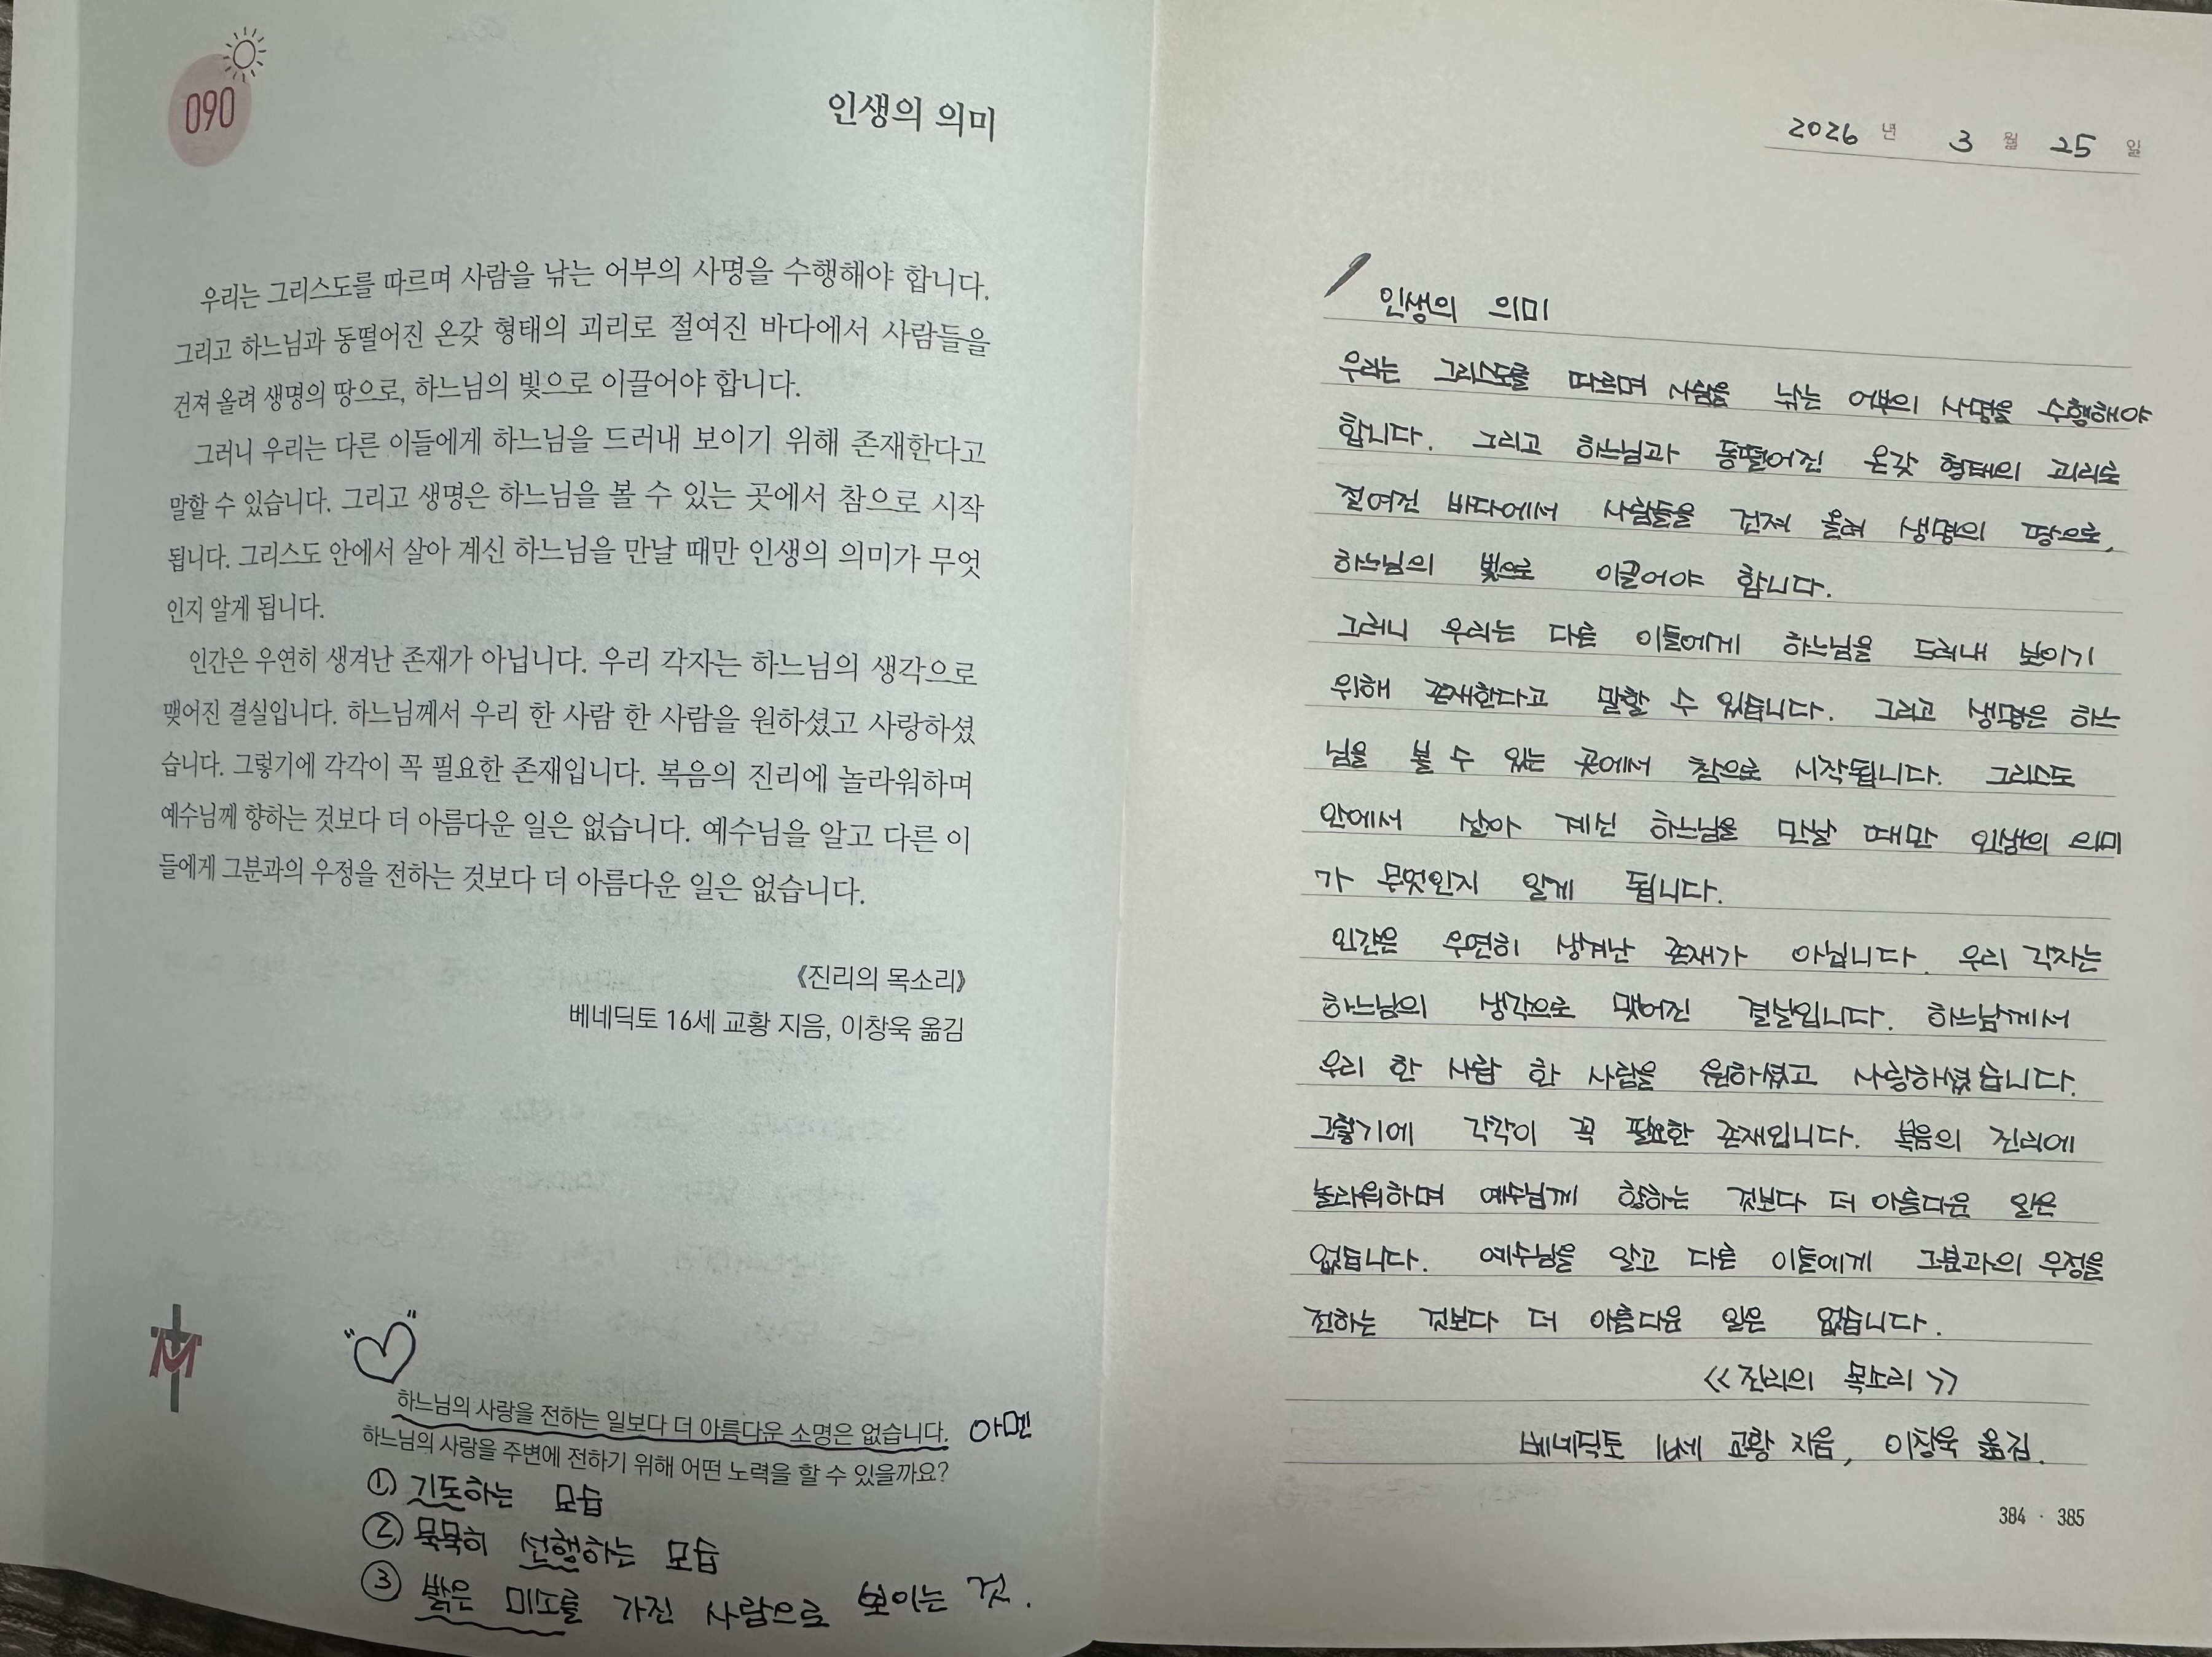 090
인생의 의미
우리는 그리스도를 따르며 사람을 낚는 어부의 사명을 수행해야 합니다.
그리고 하느님과 동떨어진 온갖 형태의 괴리로 절여진 바다에서 사람들을
건져 올려 생명의 땅으로, 하느님의 빛으로 이끌어야 합니다.
그러니 우리는 다른 이들에게 하느님을 드러내 보이기 위해 존재한다고
말할 수 있습니다. 그리고 생명은 하느님을 볼 수 있는 곳에서 참으로 시작
됩니다. 그리스도 안에서 살아 계신 하느님을 만날 때만 인생의 의미가 무엇
인지 알게 됩니다.
인간은 우연히 생겨난 존재가 아닙니다. 우리 각자는 하느님의 생각으로
맺어진 결실입니다. 하느님께서 우리 한 사람 한 사람을 원하셨고 사랑하셨
습니다. 그렇기에 각각이 꼭 필요한 존재입니다. 복음의 진리에 놀라워하며
예수님께 향하는 것보다 더 아름다운 일은 없습니다. 예수님을 알고 다른 이
들에게 그분과의 우정을 전하는 것보다 더 아름다운 일은 없습니다.
《진리의 목소리》
베네딕토 16세 교황 지음, 이창욱 옮김
M
하느님의 사랑을 전하는 일보다 더 아름다운 소명은 없습니다. 아멘
하느님의 사랑을 주변에 전하기 위해 어떤 노력을 할 수 있을까요?
① 기도하는 모습
② 묵묵히 선행하는 모습
③ 밝은 미소를 가진 사람으로 보이는 것.
2026 년 3 월 25 일
인생의 의미
우리는 그리스도를 따르며 사람을 낚는 어부의 사명을 수행해야
합니다. 그리고 하느님과 동떨어진 온갖 형태의 괴리로
절여진 바다에서 사람들을 건져 올려 생명의 땅으로,
하느님의 빛으로 이끌어야 합니다.
그러니 우리는 다른 이들에게 하느님을 드러내 보이기
위해 존재한다고 말할 수 있습니다. 그리고 생명은 하느
님을 볼 수 있는 곳에서 참으로 시작됩니다. 그리스도
안에서 살아 계신 하느님을 만날 때만 인생의 의미
가 무엇인지 알게 됩니다.
인간은 우연히 생겨난 존재가 아닙니다. 우리 각자는
하느님의 생각으로 맺어진 결실입니다. 하느님께서
우리 한 사람 한 사람을 원하셨고 사랑하셨습니다.
그렇기에 각각이 꼭 필요한 존재입니다. 복음의 진리에
놀라워하며 예수님께 향하는 것보다 더 아름다운 일은
없습니다. 예수님을 알고 다른 이들에게 그분과의 우정을
전하는 것보다 더 아름다운 일은 없습니다.
<<진리의 목소리>>
베네딕토 16세 교황 지음, 이창욱 옮김.
384 · 385